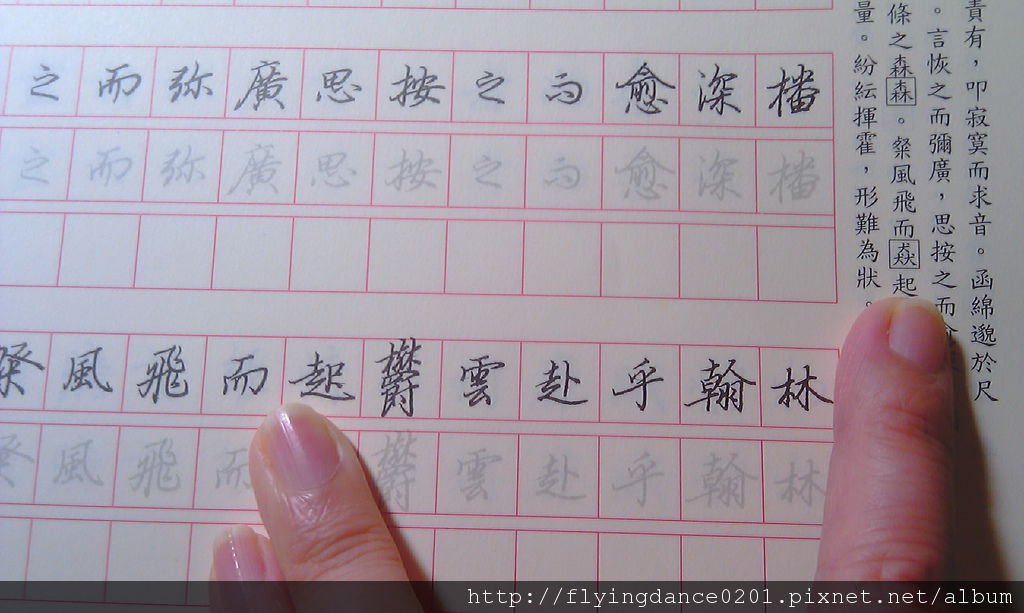 之而弥廣思按之而愈深播
之而弥廣思按之而愈深播
粲風飛而起欝雲赴乎翰林
粲風飛而欝雲赴乎翰林
責有，叩寂寞而求音。函綿邈於尺
。言恢之而彌廣，思按之而
條之森森。粲風飛而猋起
量。紛紜揮霍，形難為狀。
http://flyingdance0201.pixnet.net/album